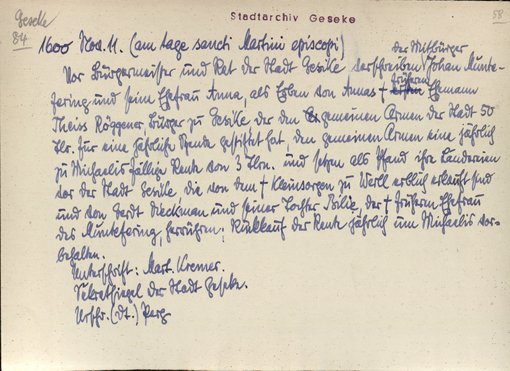 Geseke
84
Stadtarchiv Geseke
58
1600 Nov. 11. (am tage sancti Martini episcopi)
der Mitbürger
Vor Bürgermeister und Rat der Stadt Geseke verschreiben Johan Munte-
fering und seine Ehefrau Anna, als Erben von Annas † früheren Ehemann
Theiss Röggener, Bürger zu Geseke der den gemeinen Armen der Stadt 50
Tlr. für eine jährliche Rente gestiftet hat, den gemeinen Armen eine jährlich
zu Michaelis fällige Rente von 3 Tlrn. und setzen als Pfand ihre Ländereien
vor der Stadt Geseke die von dem † Kleinsorgen zu Werll erblich erkauft sind
und von Gerdt Dieckman und seiner Tochter der † früheren Ehefrau
des Muntefering, herrühren. Rückkauf der Rente jährlich um Michaelis vor-
behalten.
Unterschrift: Mart. Kremer.
Sekretsiegel der Stadt Geseke.
Urschr. (dt.) Perg.